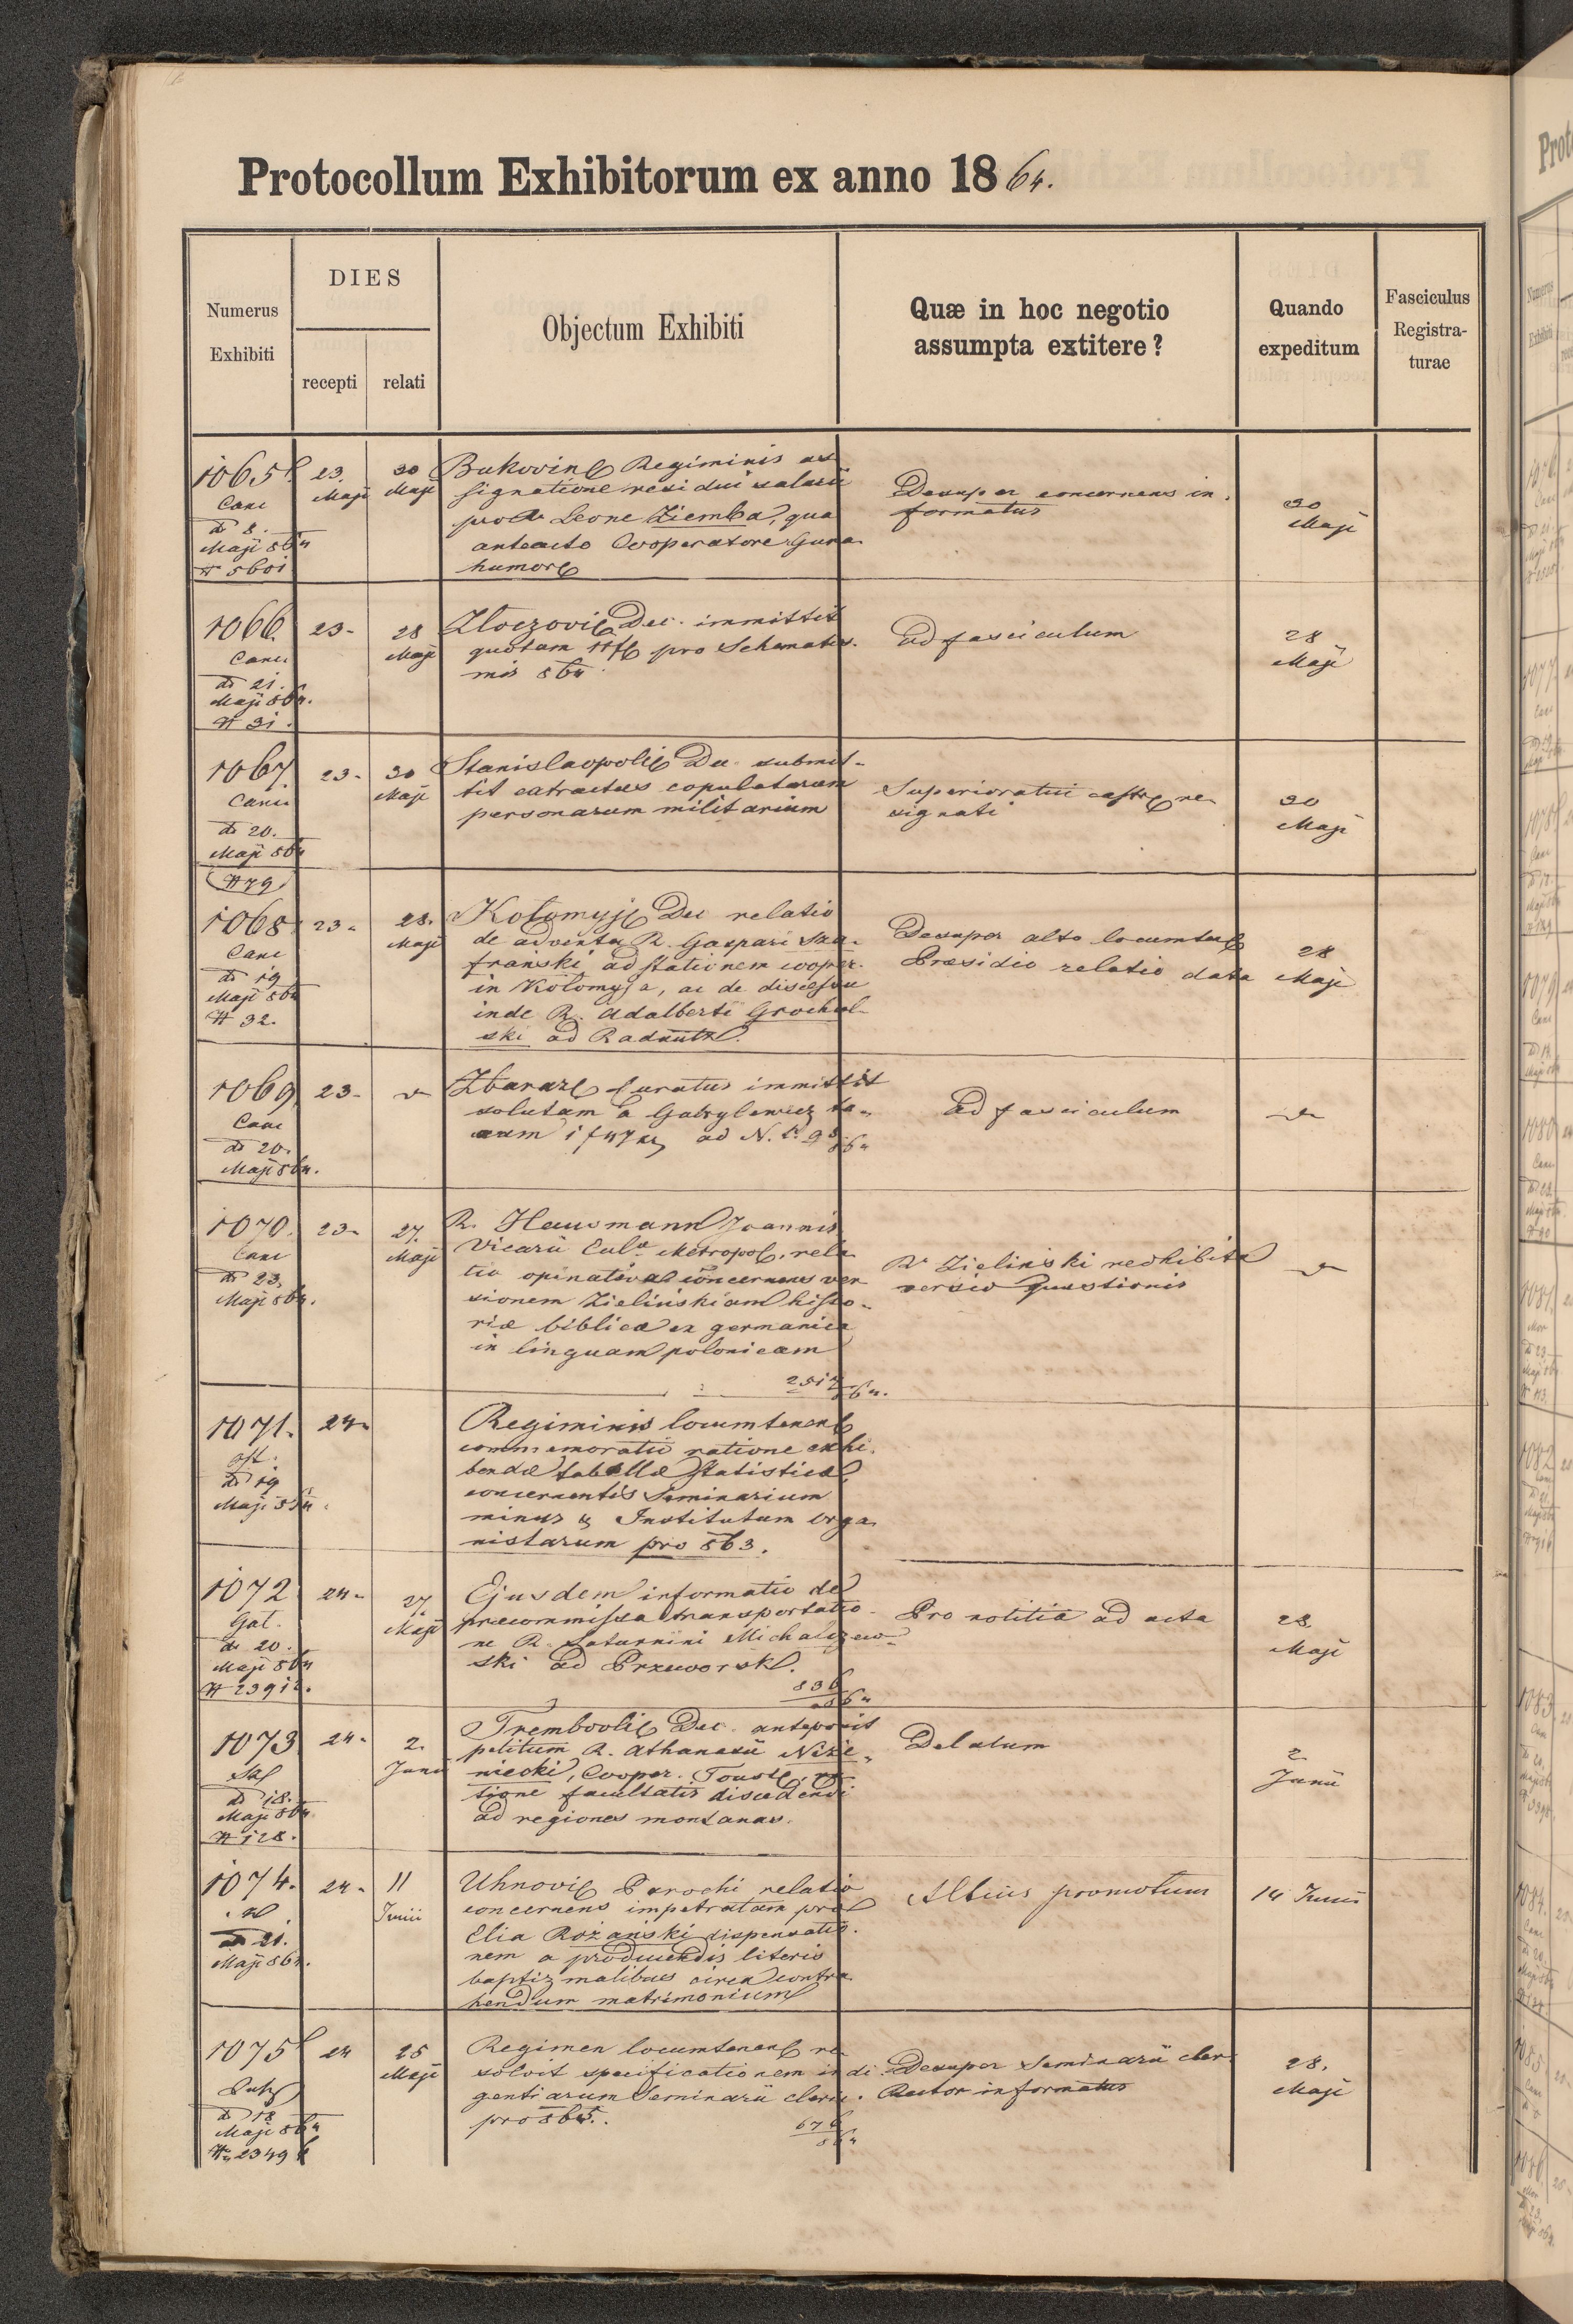 Protocollum Exhibitorum ex anno 1864.
Numerus Exhibiti
DIES
recepti
relati
Objectum Exhibiti
Quæ in hoc negotio assumpta extitere?
Quando expeditum
Fasciculus Registra-
turae
1065
Canc
do 8.
Maji 864
N 5601
23.
Maji
30
Maji
Bukovinæ Regiminis as
signatione residui salarii
pro R. Leone Ziemba, qua
anteacto Cooperatore Gura
humoræ
Desuper concernens in.
formatus
30
Maji
1066.
Canc.
do 21.
Maji 864.
N 31.
23.
28
Maji
Zloczoviæ Dec. immittit
quotam pro Schematis.
mis 864
Ad fasciculum
28
Maji
1067
Canc.
do 20.
Maji 864
N 79
23.
30
Maji
Stanislaopoliæ Dec. submit-
tit extractus copulatarum
personarum militarium
Superioratui castræ re-
signati
30
Maji
1068
Canc
do 19
Maji 864
N 32.
23.
28.
Maji
Kolomyjæ Dec relatio
de adventu R. Gaspari Sza-
frański ad stationem cooper.
in Kolomyja, ac de discessu
inde R. Adalberti Grochol-
ski ad Radautz.
Desuper alto locumten
Præsidio relatio data
28
Maji
1069.
Canc
do 20.
Maji 864.
23.
Zbaraz Curatus immittit
solutam a Gabrylewicz ta-
xam 1 f 47 xr ad N.
864
Ad fasciculum
1070.
Canc
do 23.
Maji 864.
23.
27.
Maji
R. Hausmann Joannis
Vicarii Eccl. Metropol. rela
tio opinativa concernens ver
sionem Zielinskiam histo-
riæ biblicæ ex germanica
in linguam polonicam
2517
864.
R. Zielinski redhibita
versio quæstionis
1071.
do 19
Maji 864.
24.
Regiminis locumtenent
commemoratio ratione exhi.
bendæ tabellæ statisticæ,
concernentis Seminarium
minus & Institutum Orga
nistarum pro 863.
1072
Gal.
do 20.
Maji 864
N 23912.
24.
27.
Maji
Ejusdem informatio de
præcommissa transportatio-
ne R. Saturnini Michalczew-
ski ad Przeworsk.
836
864
Pro notitia ad acta
28.
Maji
1073
Sal
do 18.
Maji 864
N 128.
24.
2.
Junii
Trembovliæ Dec. anteponit
petitum R. Athanasii Nizie-
niecki, Cooper. Touste, ra
tione facultatis discedendi
ad regiones montanas.
Delatum
2.
Junii
1074.
do 21.
Maji 864.
24.
11
Junii
Uhnoviæ Parochi relatio
concernens impetratam pro
Elia Rożański dispensatio-
nem a producendis literis
baptizmalibus circa contra
hendum matrimonium
Altius promotum
14 Junii
1075
do 18
Maji 864
N 2349
24
25
Maji
Regimen locumtenent re
solvit specificationem indi
gentiarum Seminarii cleri.
pro 865.
676
864
Desuper Seminarii cleri
Rector informatus
28.
Maji